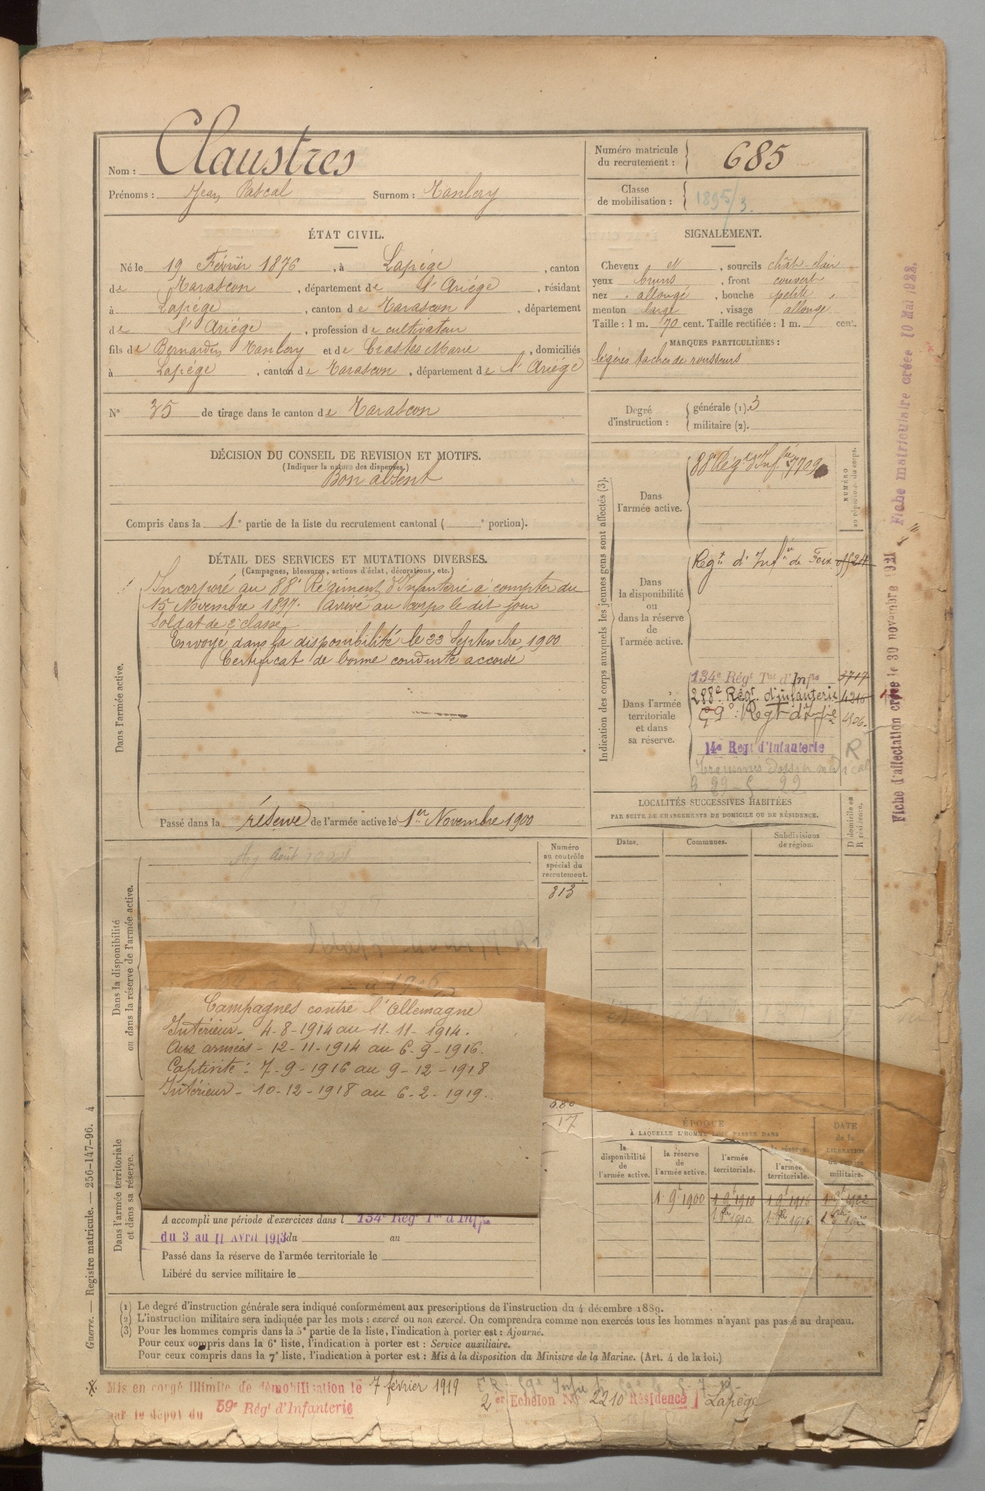 Nom : Claustres
Prénoms : Jean Pascal Surnom : Manlery
Numéro matricule du recrutement : 685
Classe de mobilisation : 1895/3
ÉTAT CIVIL.
Né le 19 Février 1876, à Lapège, canton
de Tarascon, département de l'Ariège, résidant
à Lapège, canton de Tarascon, département
de l'Ariège, profession de cultivateur
fils de Bernardin Manlery et de Crastes Marie, domiciliés
à Lapège, canton de Tarascon, département de l'Ariège
SIGNALEMENT.
Cheveux et, sourcils chât. clair
yeux bruns, front couvert
nez allongé, bouche petite
menton large, visage allongé
Taille : 1 m. 70 cent. Taille rectifiée : 1 m. cent.
MARQUES PARTICULIÈRES :
légères taches de rousseurs
N° 35 de tirage dans le canton de Tarascon
Degré d'instruction : générale (1). 3
militaire (2).
DÉCISION DU CONSEIL DE REVISION ET MOTIFS.
(Indiquer la nature des dispenses.)
Bon absent
Compris dans la 1e partie de la liste du recrutement cantonal ( e portion).
DÉTAIL DES SERVICES ET MUTATIONS DIVERSES.
(Campagnes, blessures, actions d'éclat, décorations, etc.)
Dans l'armée active.
Incorporé au 88e Régiment d'Infanterie à compter du
15 Novembre 1897. Arrivé au corps le dit jour
Soldat de 2e classe
Envoyé dans la disponibilité le 22 Septembre 1900
Certificat de bonne conduite accordé
Passé dans la réserve de l'armée active le 1er Novembre 1900
Indication des corps auxquels les jeunes gens sont affectés (3).
Dans l'armée active.
88e Régt d'Infie 7709
NUMÉRO au répertoire du corps.
Dans la disponibilité ou dans la réserve de l'armée active.
Regt d'Infie de Foix
Dans l'armée territoriale et dans sa réserve.
134e Régt Tal d'Infie 1717
288e Régt d'infanterie 4216
59e Regt d'Infie 4106
14e Regt d'Infanterie R
LOCALITÉS SUCCESSIVES HABITÉES
PAR SUITE DE CHANGEMENTS DE DOMICILE OU DE RÉSIDENCE.
Dates.
Communes.
Subdivisions de région.
D domicile ou R résidence.
Dans la disponibilité ou dans la réserve de l'armée active.
Numéro au contrôle spécial du recrutement.
313
Campagnes contre l'Allemagne
Intérieur - 4-8-1914 au 11-11-1914.
Aux armées - 12-11-1914 au 6-9-1916.
Captivité : 7-9-1916 au 9-12-1918
Intérieur - 10-12-1918 au 6-2-1919.
Dans l'armée territoriale et dans sa réserve.
A accompli une période d'exercices dans l 134e Rég Tal d'Infie
du 3 au 11 Avril 1913 du au
Passé dans la réserve de l'armée territoriale le
Libéré du service militaire le
17
ÉPOQUE
À LAQUELLE L'HOMME DOIT PASSER DANS
la disponibilité de l'armée active.
la réserve de l'armée active.
l'armée territoriale.
l'armée territoriale.
DATE de la LIBÉRATION du service militaire.
1 9e 1900
1 9e 1910
1 9e 1916
(1) Le degré d'instruction générale sera indiqué conformément aux prescriptions de l'instruction du 4 décembre 1889.
(2) L'instruction militaire sera indiquée par les mots : exercé ou non exercé. On comprendra comme non exercés tous les hommes n'ayant pas passé au drapeau.
(3) Pour les hommes compris dans la 5e partie de la liste, l'indication à porter est : Ajourné.
Pour ceux compris dans la 6e liste, l'indication à porter est : Service auxiliaire.
Pour ceux compris dans la 7e liste, l'indication à porter est : Mis à la disposition du Ministre de la Marine. (Art. 4 de la loi.)
Mis en congé illimité de démobilisation le 7 février 1919
par le dépôt du 59e Rég' d'Infanterie
2er Echelon No 2210 Résidence Lapège
Guerre. — Registre matricule. — 256-147-96. 4
Fiche d'affectation créée le 30 novembre 1921
Fiche matriculaire créée 10 Mai 1922.